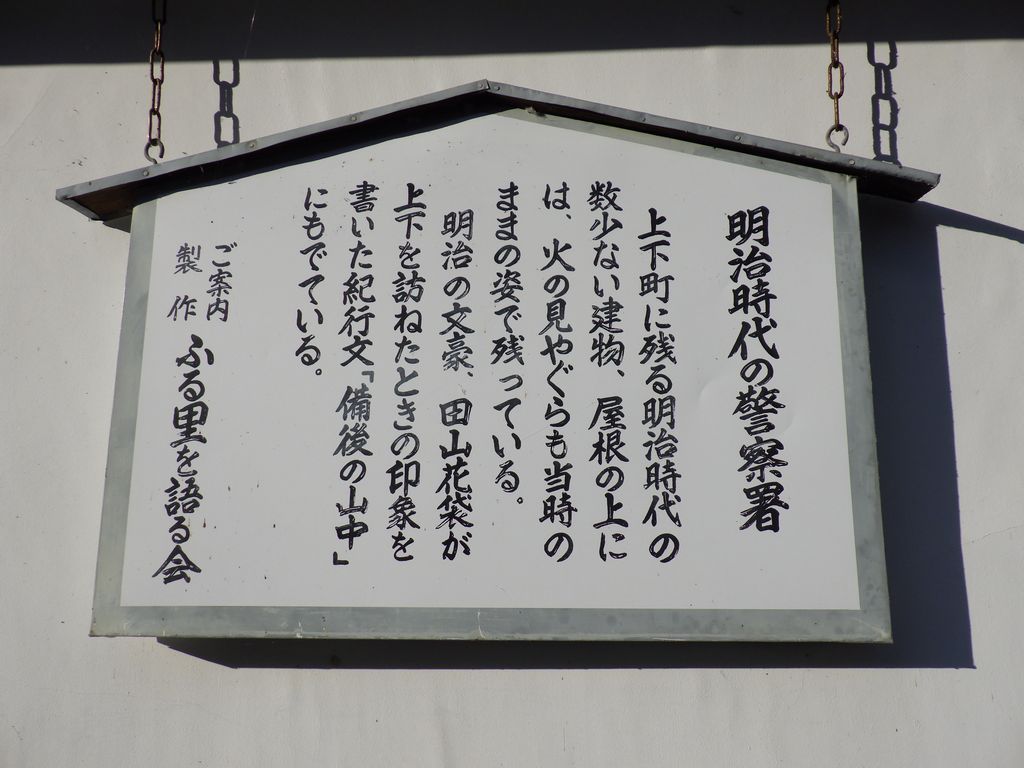 明治時代の警察署
上下町に残る明治時代の
数少ない建物、屋根の上に
は、火の見やぐらも当時の
ままの姿で残っている。
明治の文豪、田山花袋が
上下を訪ねたときの印象を
書いた紀行文「備後の山中」
にもでている。
ご案内
製作
ふる里を語る会